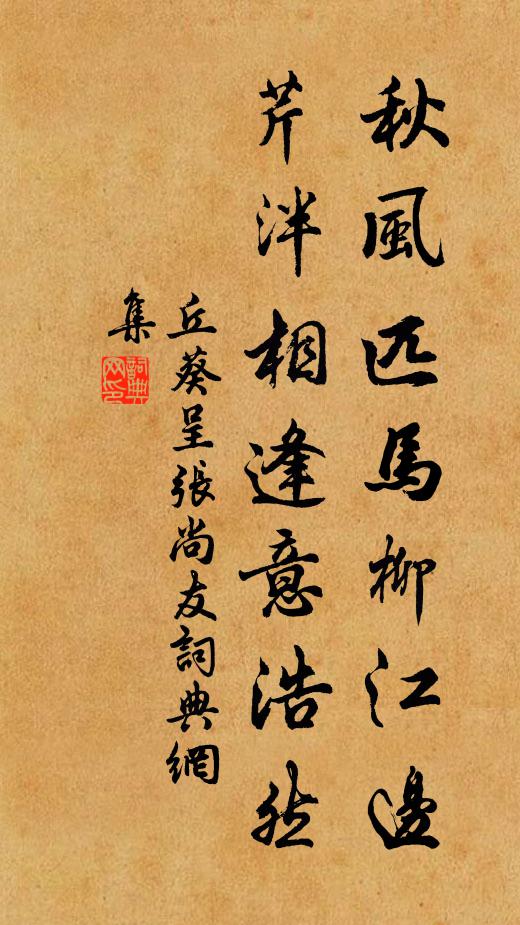 秋風匹馬柳江邊
芹泮相逢意浩然
丘葵呈張尚友詞典網
集
詞典
网印